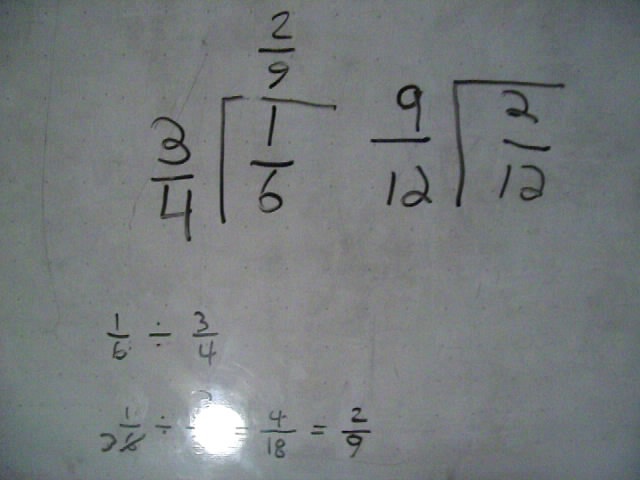 2/9
3/4 ⟌ 1/6
9/12 ⟌ 2/12
1/6 ÷ 3/4
1/6 ÷ = 4/18 = 2/9